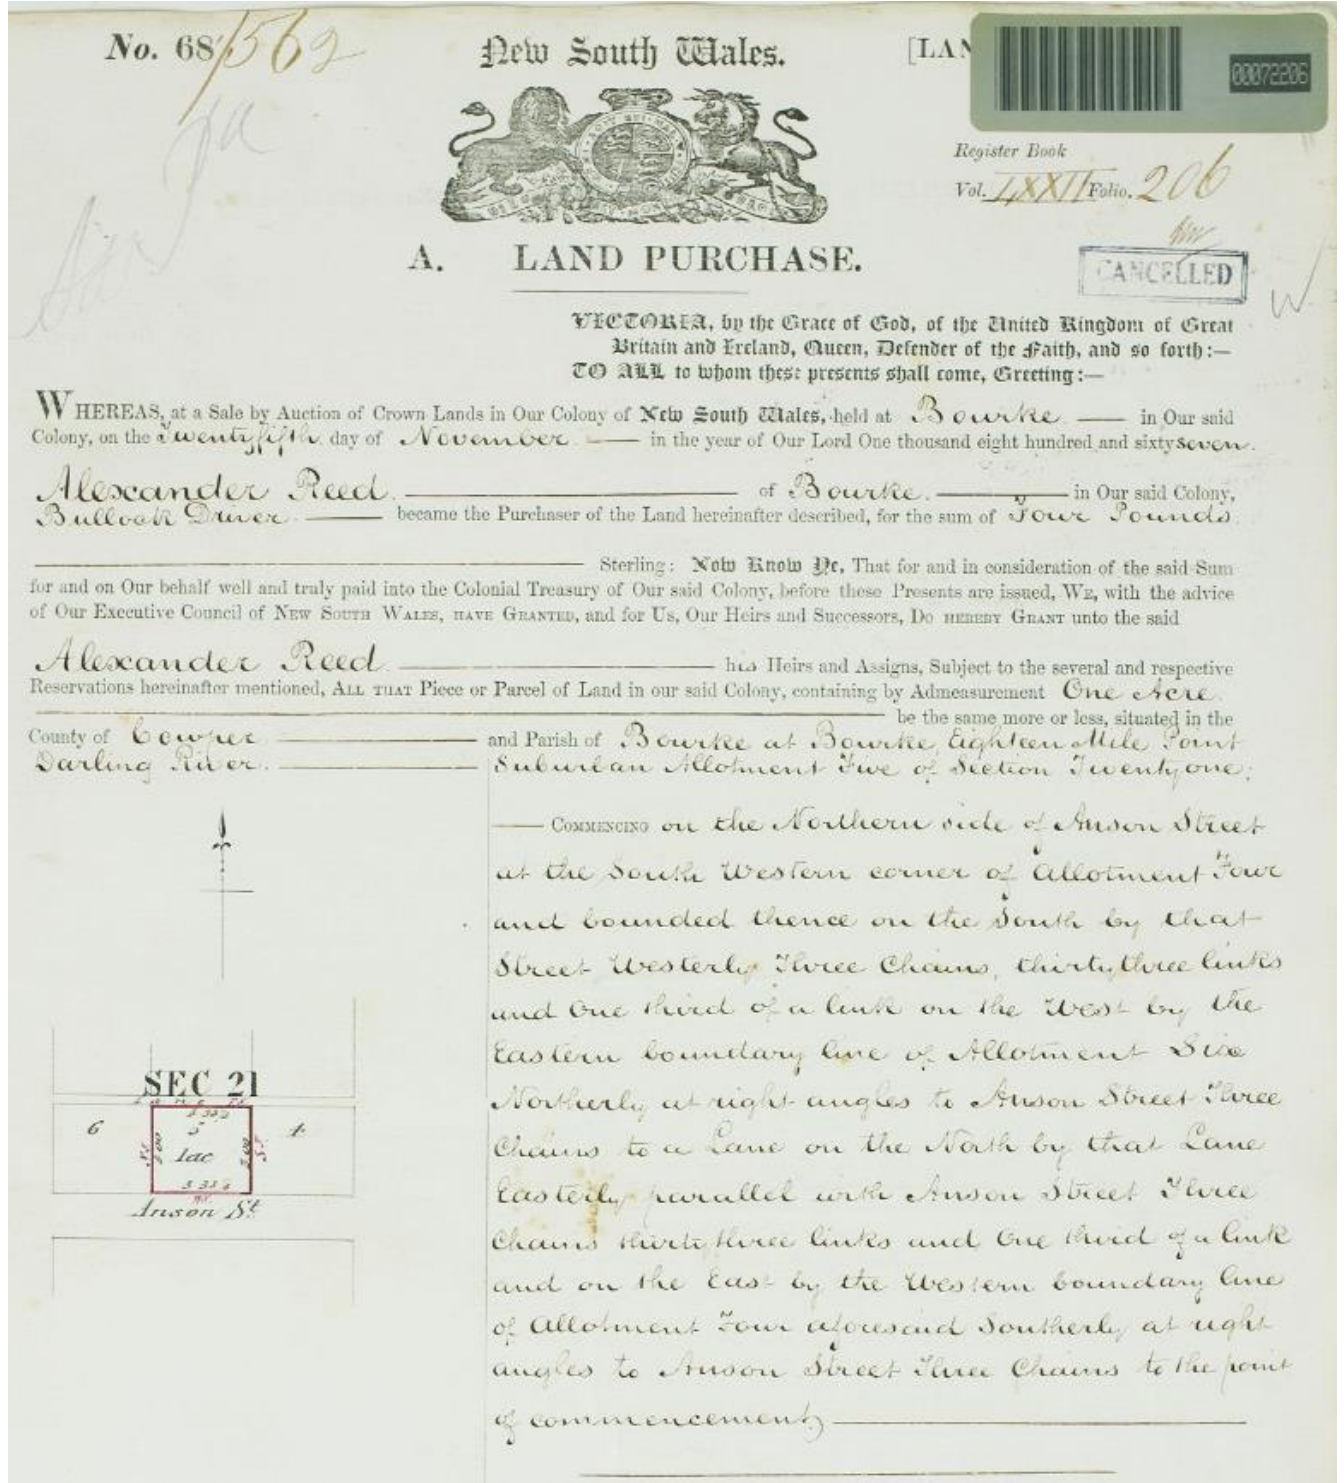 No. 68/562
New South Wales.
[LAN
00072206
Register Book
Vol. LXXII Folio. 206
CANCELLED
A. LAND PURCHASE.
VICTORIA, by the Grace of God, of the United Kingdom of Great
Britain and Ireland, Queen, Defender of the Faith, and so forth:—
TO ALL to whom these presents shall come, Greeting:—
WHEREAS, at a Sale by Auction of Crown Lands in Our Colony of New South Wales, held at Bourke — in Our said
Colony, on the Twenty fifth day of November — in the year of Our Lord One thousand eight hundred and sixty seven.
Alexander Reed — of Bourke — in Our said Colony,
Bullock Driver — became the Purchaser of the Land hereinafter described, for the sum of Four Pounds
— Sterling: Now Know Ye, That for and in consideration of the said Sum
for and on Our behalf well and truly paid into the Colonial Treasury of Our said Colony, before these Presents are issued, WE, with the advice
of Our Executive Council of NEW SOUTH WALES, HAVE GRANTED, and for Us, Our Heirs and Successors, DO HEREBY GRANT unto the said
Alexander Reed — his Heirs and Assigns, Subject to the several and respective
Reservations hereinafter mentioned, ALL THAT Piece or Parcel of Land in our said Colony, containing by Admeasurement One Acre
— be the same more or less, situated in the
County of Cowper — and Parish of Bourke at Bourke, Eighteen Mile Point
Darling River. — Suburban Allotment Five of Section Twenty one;
— COMMENCING on the Northern side of Anson Street
at the South Western corner of Allotment Four
and bounded thence on the South by that
Street Westerly Three Chains, thirty three links
and One third of a link on the West by the
Eastern boundary line of Allotment Six
Northerly at right angles to Anson Street Three
Chains to a Lane on the North by that Lane
Easterly parallel with Anson Street Three
Chains thirty three links and One third of a link
and on the East by the Western boundary line
of Allotment Four aforesaid Southerly at right
angles to Anson Street Three Chains to the point
of commencement;
SEC 21
Lane
6
5
4
1ac
Anson St.